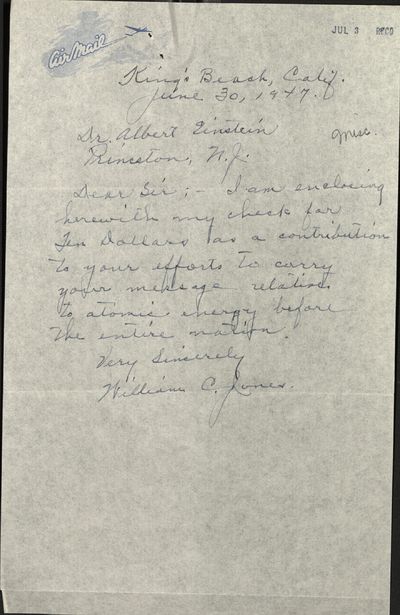 Air Mail
JUL 3 RECD
King's Beach, Calif.
June 30, 1947.
Dr. Albert Einstein
misc.
Princeton, N.J.
Dear Sir; - I am enclosing
herewith my check for
Ten Dollars as a contribution
to your efforts to carry
your message relative
to atomic energy before
the entire nation.
Very Sincerely
William C. Jones.